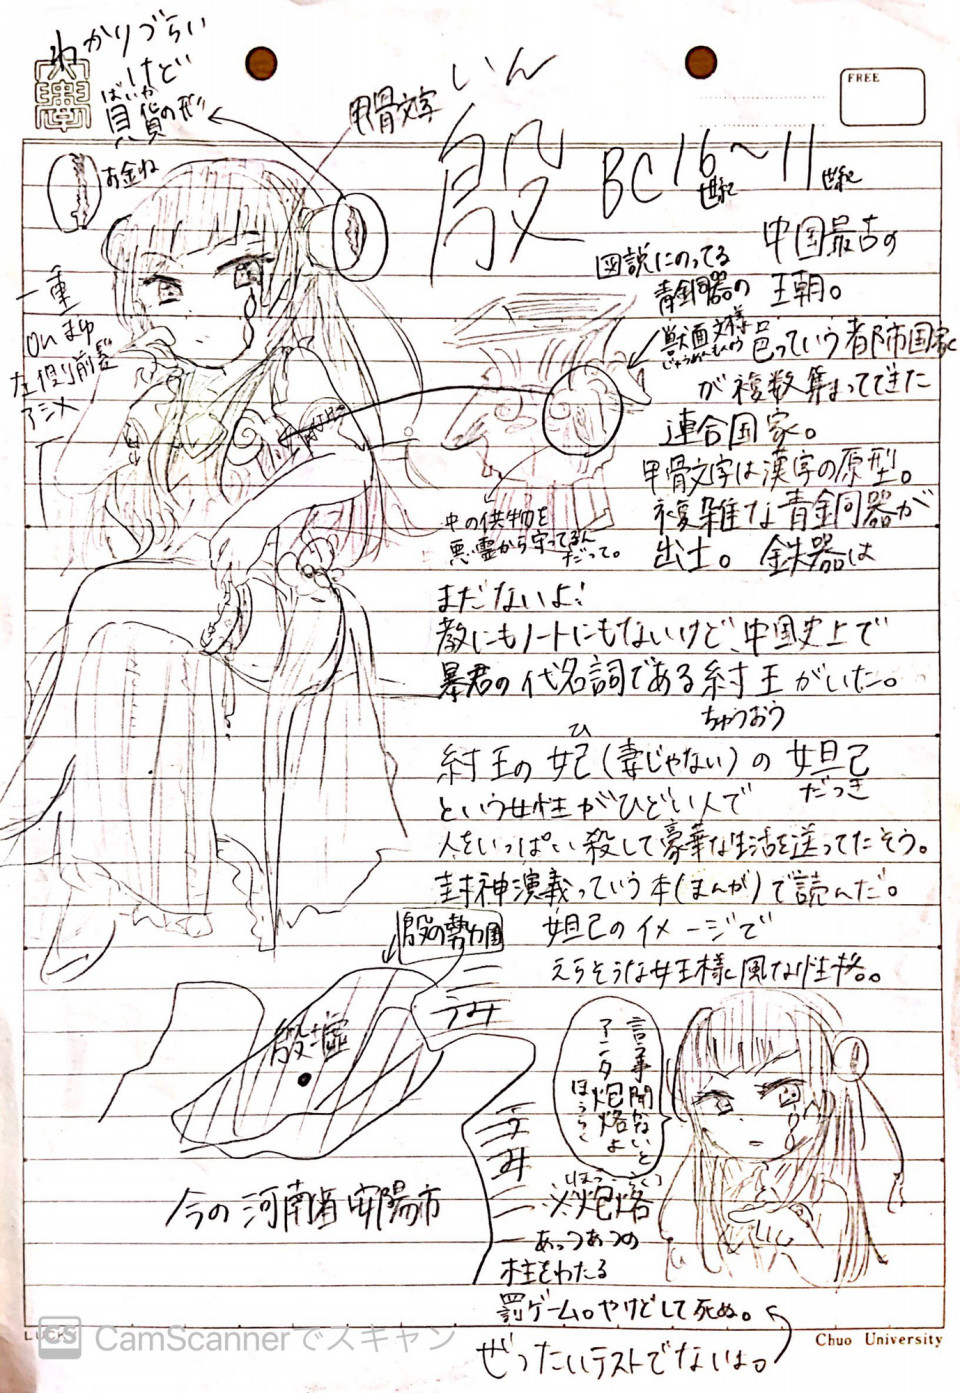 わかりづらい
けど
ばいか
貝貨の形
お金ね
甲骨文字
いん
殷
BC16世紀~11世紀
FREE
中国最古の
王朝。
図説にのってる
青銅器の
獣面文様
じゅうめんもんよう
邑っていう都市国家
が複数集まってできた
連合国家。
甲骨文字は漢字の原型。
複雑な青銅器が
出土。鉄器は
まだないよ!
一重
on まゆ
左側前髪
アシメ
中の供物を
悪霊から守ってるん
だって。
教にもノートにもないけど、中国史上で
暴君の代名詞である紂王がいた。
ちゅうおう
ひ
紂王の妃(妻じゃない)の妲己
だっき
という女性がひどい人で
人をいっぱい殺して豪華な生活を送ってたそう。
封神演義っていう本(まんが)で読んだ。
妲己のイメージで
えらそうな女王様風な性格。
殷の勢力圏
うみ
殷墟
うみ
今の河南省安陽市
言う事聞かないと
アンタ炮烙よ
ほうらく
※炮烙
あっつあつの
柱をわたる
罰ゲーム。やけどして死ぬ。
ぜったいテストでないよ。
CS CamScannerでスキャン
Chuo University